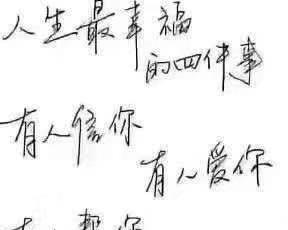 人生最幸福
的四件事
有人信你
有人爱你